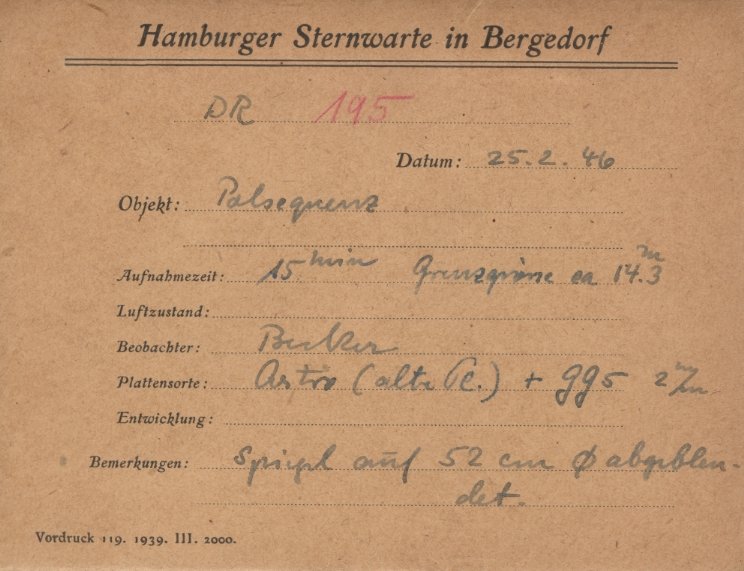 Hamburger Sternwarte in Bergedorf
DR 195
Datum: 25.2.46
Objekt: Polsequenz
Aufnahmezeit: 15 min Grenzgrösse ca 14.3 m
Luftzustand:
Beobachter: Becker
Plattensorte: Astro (alte Pl.) + gg5
Entwicklung:
Bemerkungen: Spiegel auf 52 cm ∅ abgeblen-
det.
Vordruck 119. 1939. III. 2000.